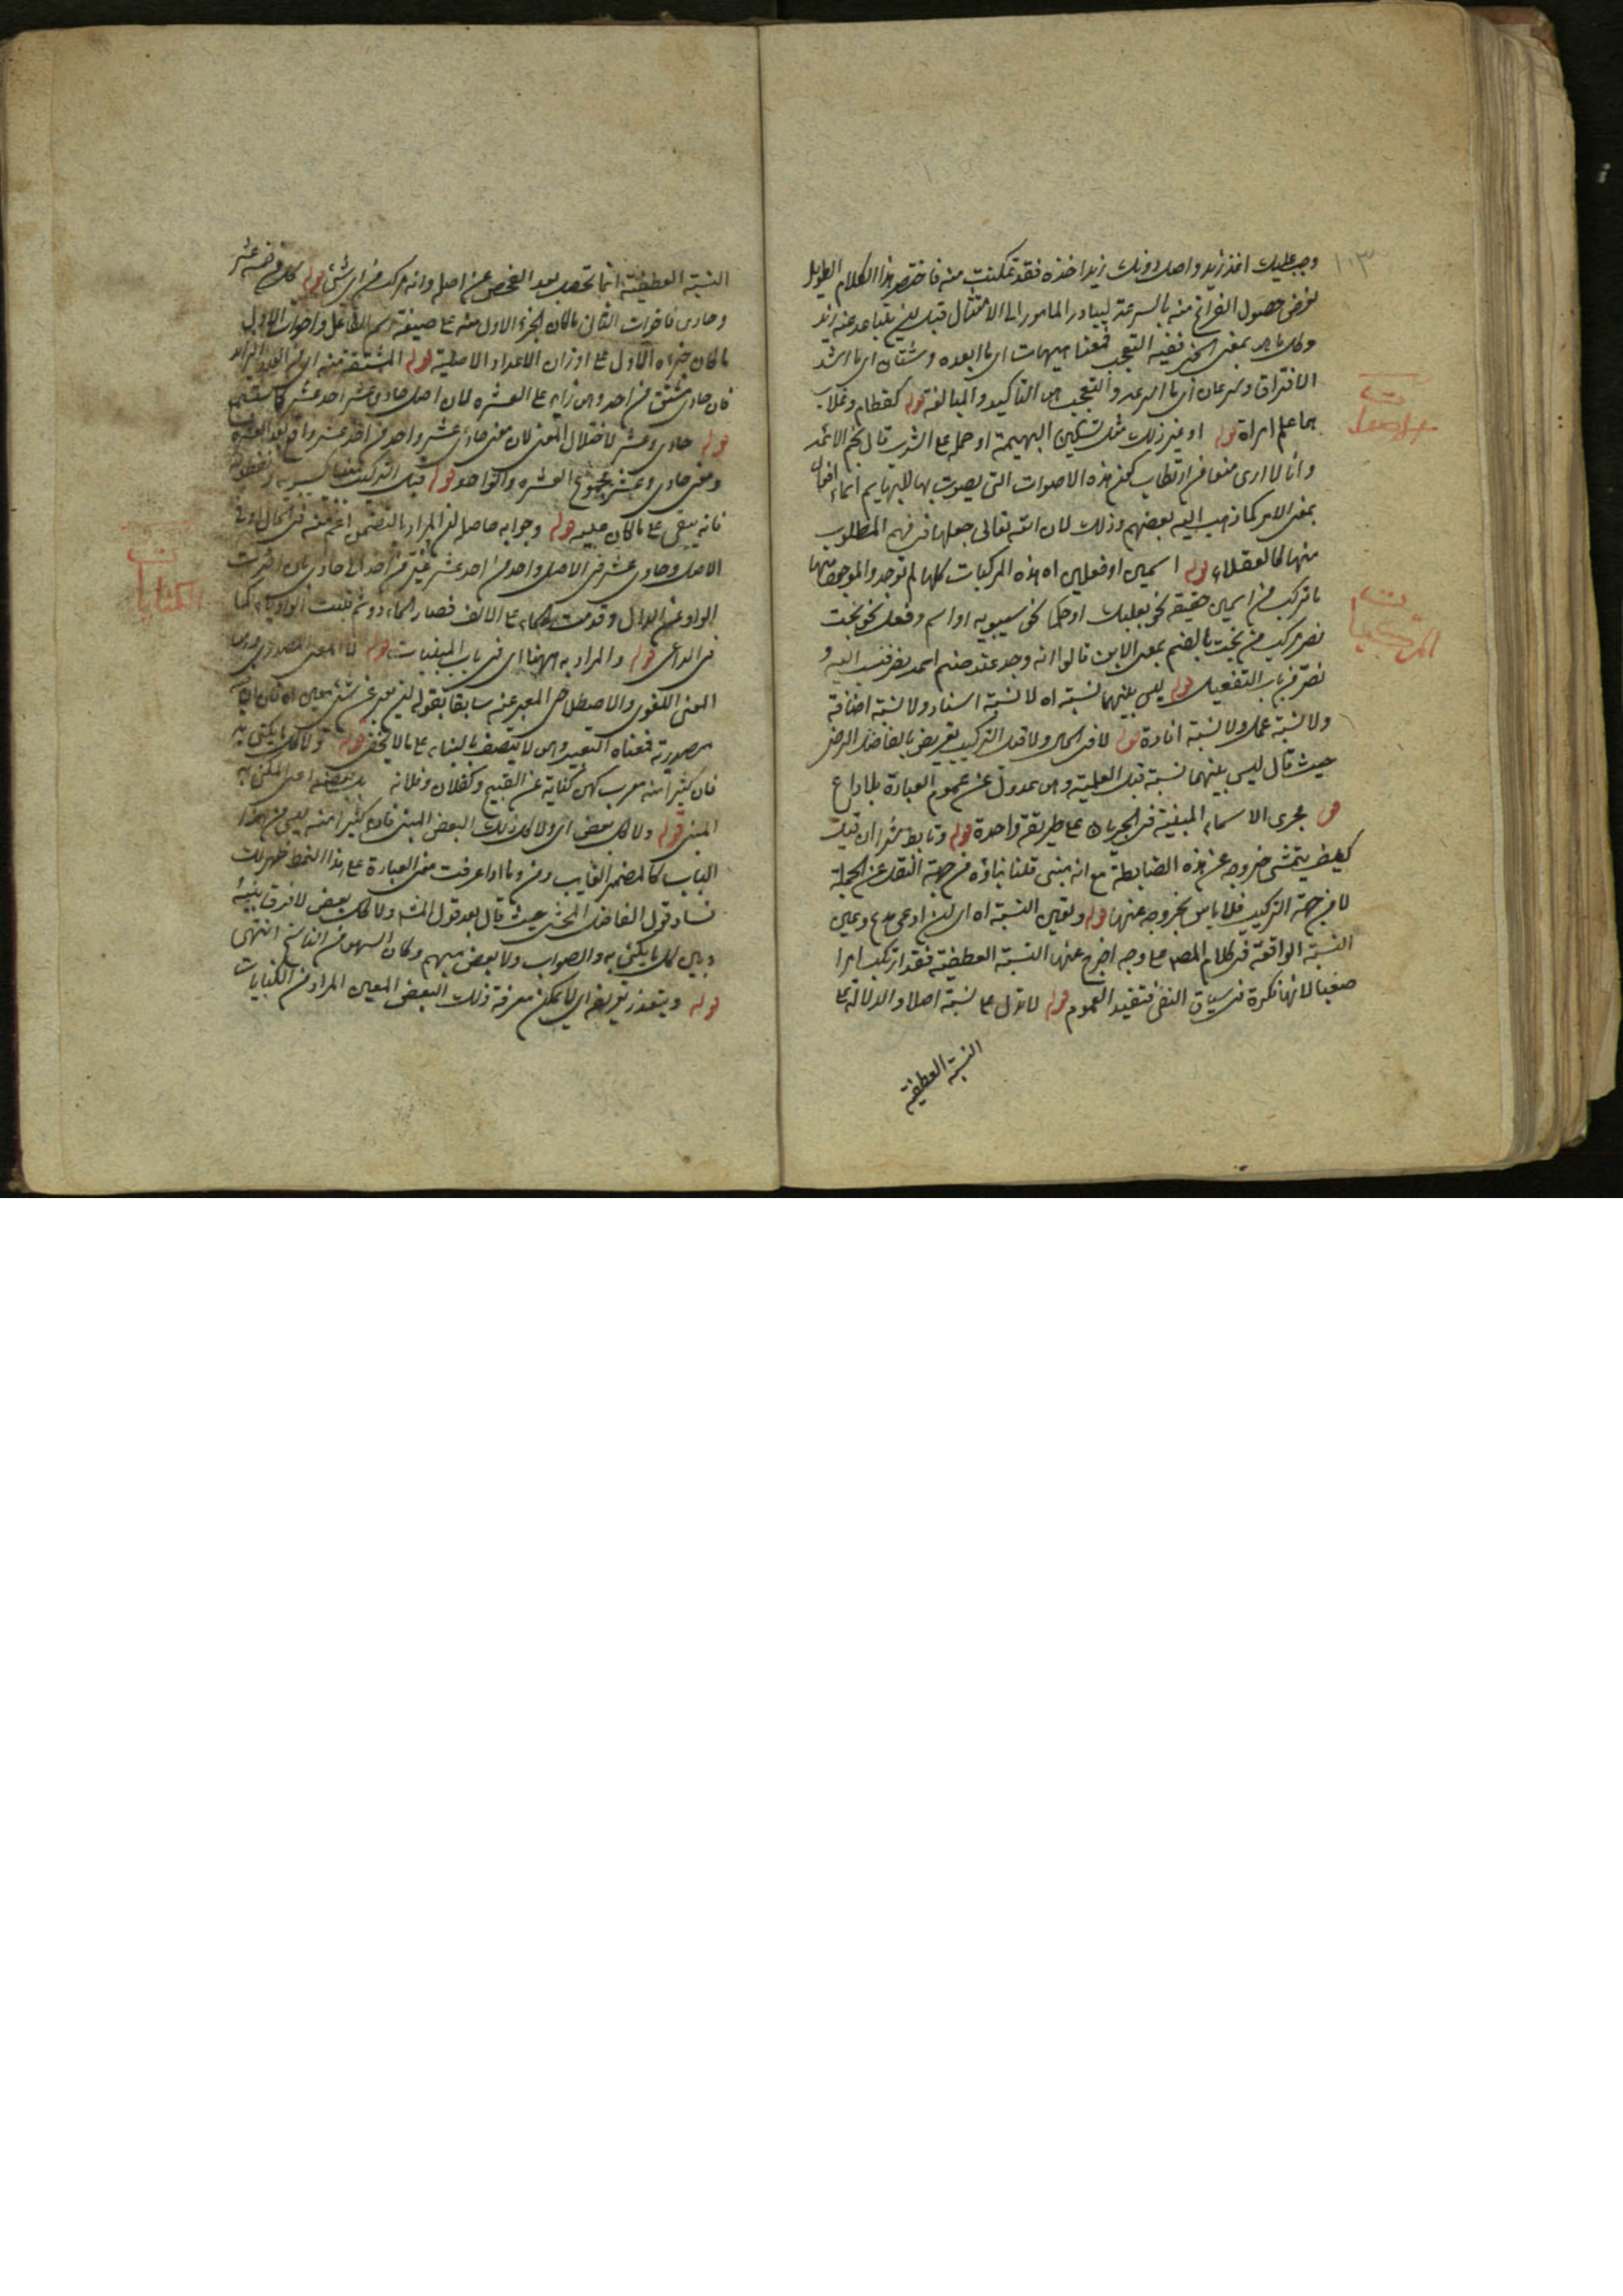 وجب عليك اخذ زيد واصل دونك زيدا خذه فقد تمكنت منه فاختصر هذا الكلام الطويل
لغرض حصول الفراغ منه بالسرعة ليبادر المامور الى الامتثال قبل ان يتباعد عنه زيد
وكل ما هو بمعنى الخبر ففيه التعجب فمعنا هيهات اى ما ابعده وشتان اى ما اشد
الافتراق وسرعان اى ما اسرعه والتعجب هو التاكيد والمبالغة قوله كقطام وغلاب
هما علم امراة قوله او غير ذلك مثل تسكين البهيمة او حملها على الشرب قال نجم الائمه
وانا لا ارى منعا من ارتكاب كون هذه الاصوات التى يصوت بها للبهايم اسماء افعال
بمعنى الامر كما ذهب اليه بعضهم وذلك لان الله تعالى جعلها فى فهم المطلوب
منها كالعقلاء قوله اسمين او فعلين اه هذه المركبات كلها لم توجد والموجود منها
ما تركب من اسمين حقيقة نحو بعلبك او حكما نحو سيبويه او اسم وفعل نحو بخت
نصر مركب من بخت بالضم بمعنى الابن قالوا انه وجد عند صنم اسمه نصر فنسب اليه و
نصر من باب التفعيل قوله ليس بينهما نسبة اه لا نسبة اسناد ولا نسبة اضافة
ولا نسبة عمل ولا نسبة افادة قوله لا فى الحال ولا قبل التركيب تعريض بالفاضل الرضى
حيث قال ليس بينهما نسبة قبل العلمية وهو عدول عن عموم العبارة بلا داع
مجرى الاسماء المبنية فى الجريان على طريقة واحدة قوله وتابط شرا ان قيل
كيف يتمشى خروجه عن هذه الضابطة مع انه مبنى قلنا بناؤه من جهة النقل عن الجملة
لا من جهة التركيب فلا باس بخروجه عنها قوله وتعين النسبة اه اى لئن ادعى مدع وعين
النسبة الواقعة فى كلام المص على وجه اخرج عنها النسبة العطفية فقد ارتكب امرا
صعبا لانها نكرة فى سياق النفى فتفيد العموم قوله لا تدل على نسبة اصلا والدلالة على
النسبة العطفية
الاصوات
المركبات
النسبة العطفية انما تحصل بعد الفحص عن اصله وانه مركب من اى شئ قوله كان خمسة عشر
وحادى فاخوات الثانى ما كان الجزء الاول منه على صيغة اسم الفاعل واخوات الاول
ما كان جزءه الاول على اوزان الاعداد الاصلية قوله المشتقة منه اى من العدد الزايد
فان حادى مشتق من احد وهو زايد على العشره لان اصل حادى عشر احد عشر
قوله حادى وعشر لاختلال المعنى لان معنى حادى عشر واحد من احد عشر واقع بعد العشره
ومعنى حادى وعشر مجموع العشره والواحد قوله قبل التركيب مبنيا كسيبويه ونفطويه
فانه يبقى على ما كان عليه قوله وجوابه حاصله ان المراد بالتضمن اعم منه فى الحال او فى
الاصل وحادى عشر فى الاصل واحد من احد عشر غير من احد الى حادى بان اخرت
الواو عن الدال وقدمت الحاء على الالف فصار الحادو ثم قلبت الواو ياء كما
فى الداعى قوله والمراد به ههنا اى فى باب المبنيات قوله لا المعنى المصدرى
المعنى اللغوى والاصطلاحى المعبر عنه سابقا بقوله ان يعبر عن شئ معين اه
مصدرية فمعناه التعبير وهو لا يتصف بالبناء على ما لا يخفى قوله ولا كل ما يكنى به
فان كثيرا منه معرب كهن كناية عن القبيح وكفلان وفلانة بل بعضه اعنى المكنى به
المبنى قوله ولا كل بعض اى ولا كل ذلك البعض المبنى فان كثيرا منه ليس من هذا
الباب كالمضمر الغايب ومن وما اذا عرفت معنى العبارة على هذا النمط ظهر لك
فساد قول الفاضل المحشى حيث قال بعد قول الشه ولا كل بعض لا فرق بينه
وبين كل ما يكنى به والصواب ولا بعض مبهم وكان السهو من الناسخ انتهى
قوله ويتعذر تعريفه اى لا يمكن معرفة ذلك البعض المعين المراد من الكنايات
الكنايات